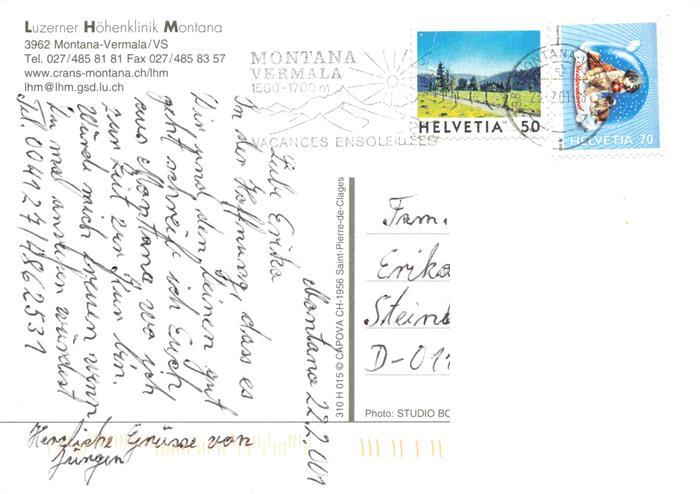 Luzerner Höhenklinik Montana
3962 Montana-Vermala/VS
Tel. 027/485 81 81 Fax 027/485 83 57
www.crans-montana.ch/lhm
lhm@lhm.gsd.lu.ch
MONTANA
VERMALA
1500-1700 m
VACANCES ENSOLEILLÉES
HELVETIA 50
HELVETIA 70
MONTANA
Montana 22.2.001
Liebe Erika
In der Hoffnung, dass es
Dir und den deinen gut
geht schreib ich Euch
aus Montana wo ich
zur Zeit zur Kur bin.
Würde mich freuen wenn
du mal anrufen würdest
Tel. 004127/4862531
Herzliche Grüsse von
Jürgen
Fam.
Erika
Steinb
D-011
310 H 015 © CAPOVA CH-1956 Saint-Pierre-de-Clages
Photo: STUDIO BO